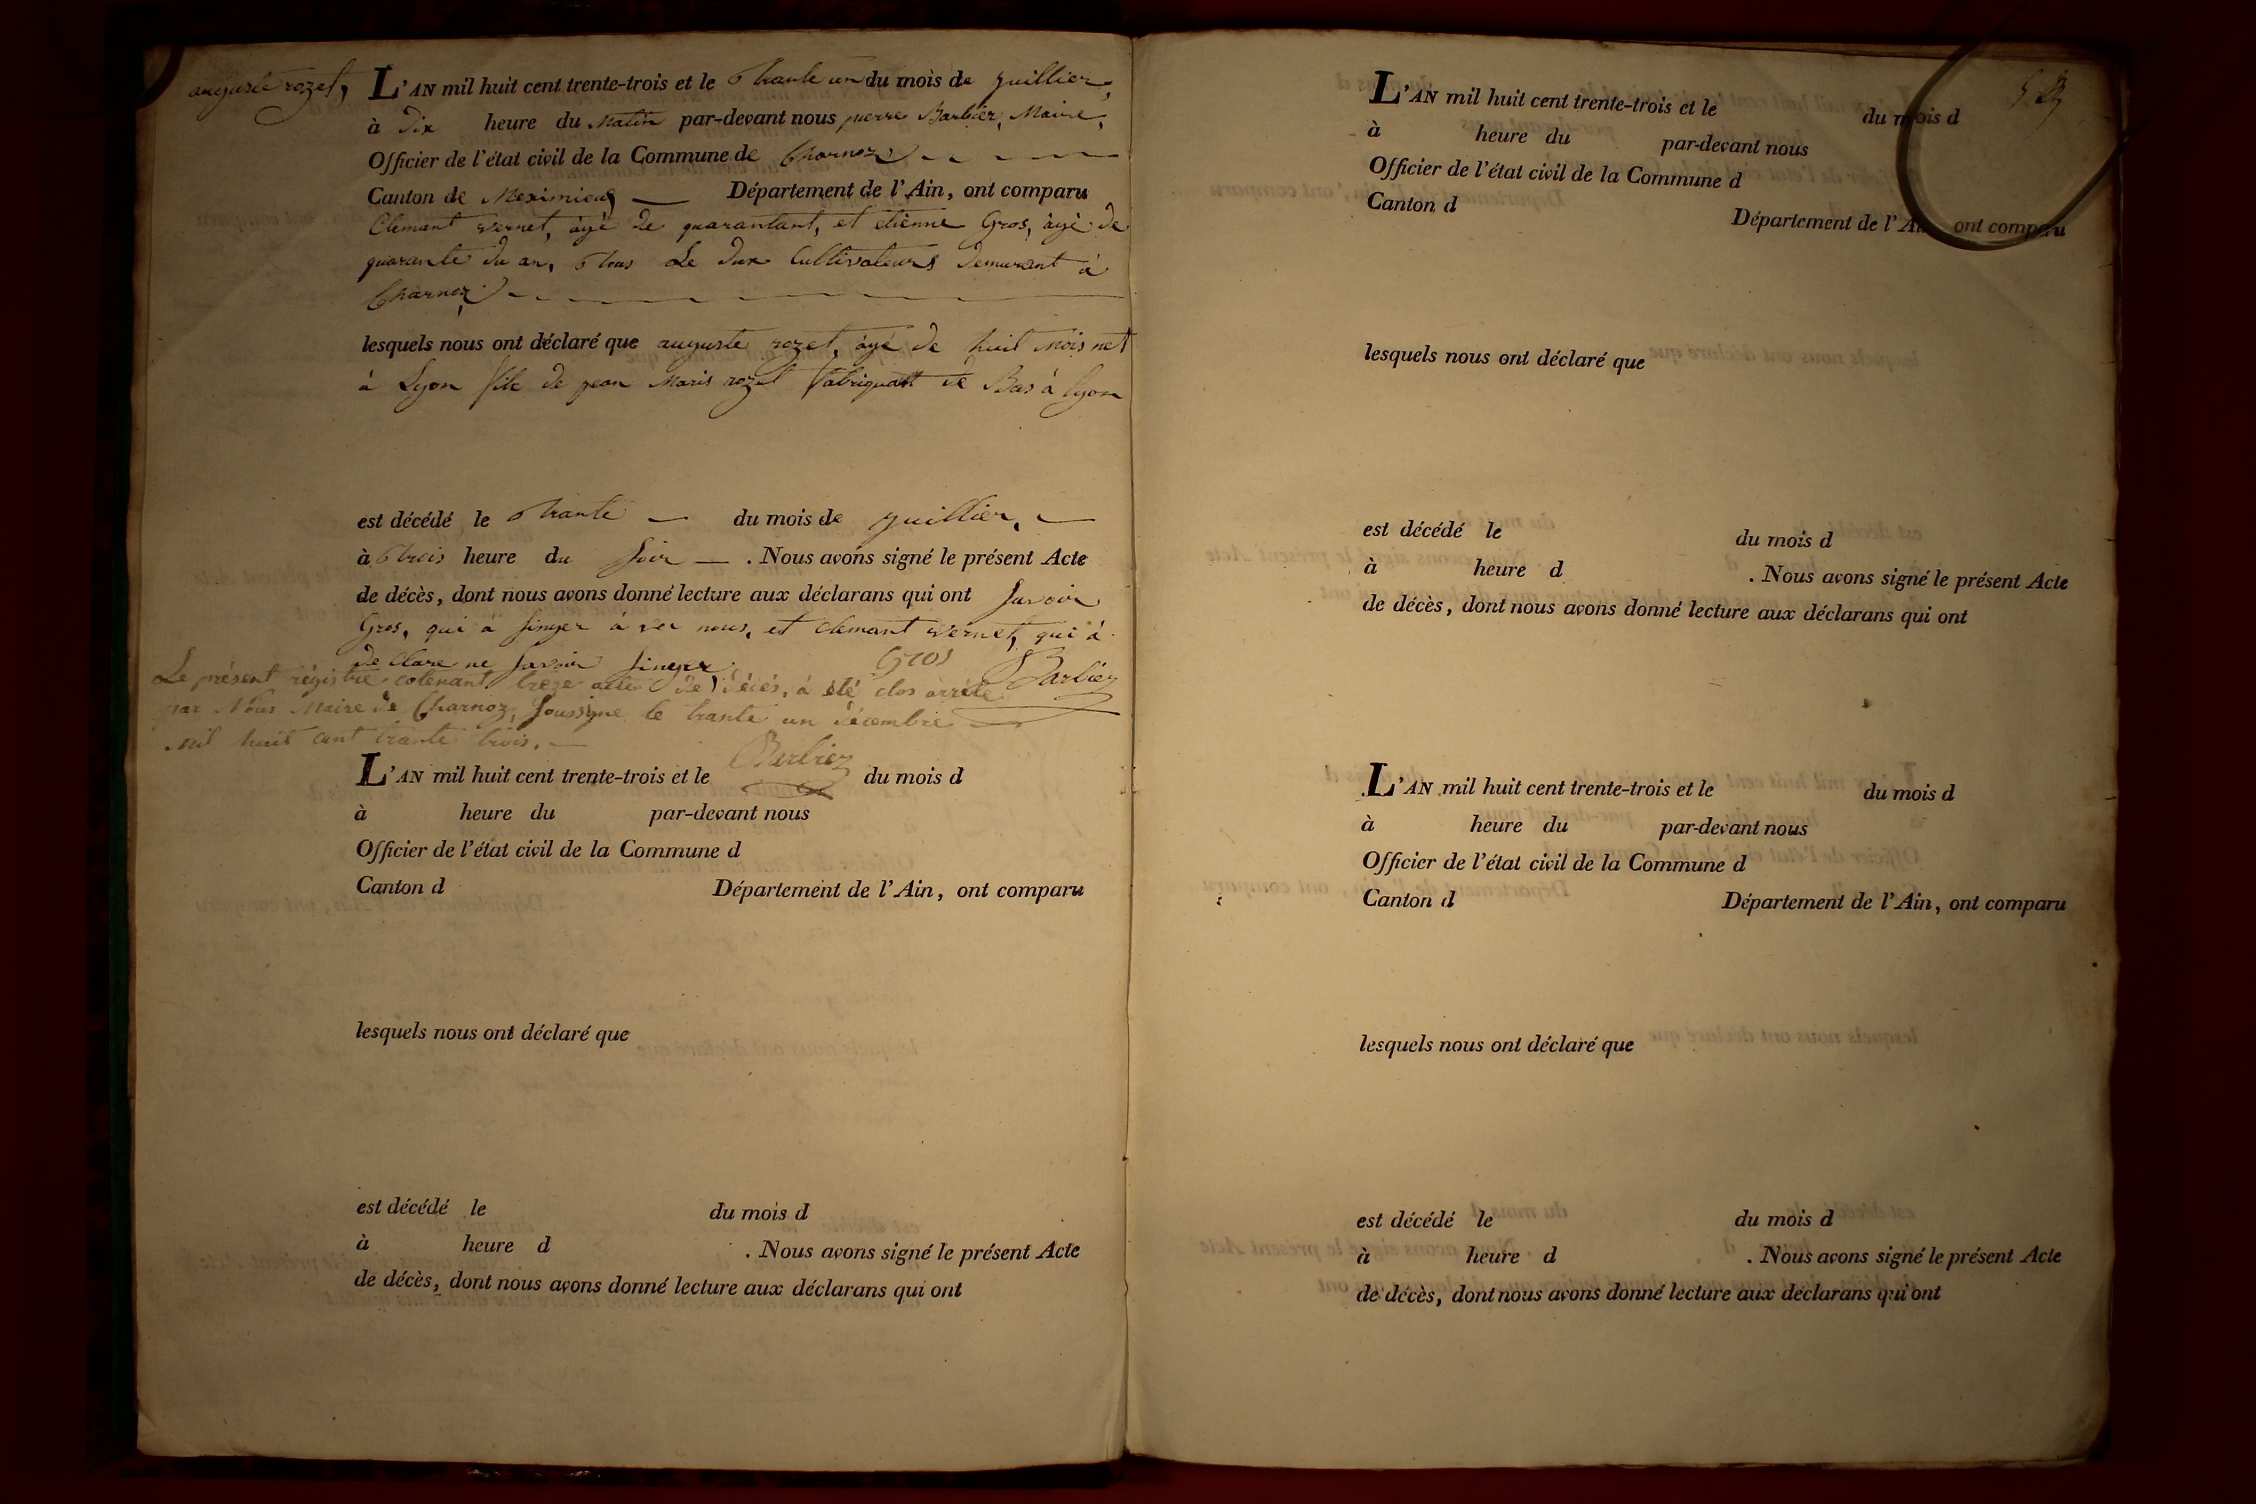 auguste rozet,
L'AN mil huit cent trente-trois et le trante un du mois de juillier,
à dix heure du matin par-devant nous pierre Barbier, Maire,
Officier de l'état civil de la Commune de Charnoz
Canton de Meximieu Département de l'Ain, ont comparu
Clemant vernet, âgé de quarantant, et etienne Gros, âgé de
quarante du an, tous Le dux Cultivateurs demurant à
Charnoz
lesquels nous ont déclaré que auguste rozet, âgé de huit mois net
à Lyon fils de jean Maris rozet fabriquant de Bas à lyon
est décédé le trante du mois de juillier,
à trois heure du soir . Nous avons signé le présent Acte
de décès, dont nous avons donné lecture aux déclarans qui ont savoir
Gros, qui a singer a vec nous, et clemant vernet, qui à
de clare ne savoir singer. Gros Barbier
Le présent régistre cotenant treze actes de décés, à été clos arrété
par Nous Maire de Charnoz, soussigne le trante un décembre
mil huit cent trante trois.
Barbier
L'AN mil huit cent trente-trois et le du mois d
à heure du par-devant nous
Officier de l'état civil de la Commune d
Canton d Département de l'Ain, ont comparu
lesquels nous ont déclaré que
est décédé le du mois d
à heure d . Nous avons signé le présent Acte
de décès, dont nous avons donné lecture aux déclarans qui ont
L'AN mil huit cent trente-trois et le du mois d
à heure du par-devant nous
Officier de l'état civil de la Commune d
Canton d Département de l'Ain, ont comparu
lesquels nous ont déclaré que
est décédé le du mois d
à heure d . Nous avons signé le présent Acte
de décès, dont nous avons donné lecture aux déclarans qui ont
L'AN mil huit cent trente-trois et le du mois d
à heure du par-devant nous
Officier de l'état civil de la Commune d
Canton d Département de l'Ain, ont comparu
lesquels nous ont déclaré que
est décédé le du mois d
à heure d . Nous avons signé le présent Acte
de décès, dont nous avons donné lecture aux déclarans qui ont